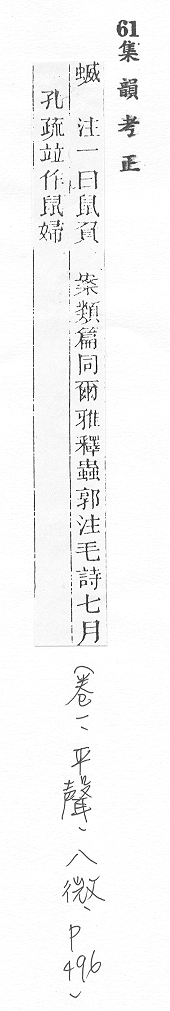 61集韻考正
蝛 注一曰鼠負 案類篇同爾雅釋蟲郭注毛詩七月
孔疏竝作鼠婦
(卷一、平聲、八微、P496)